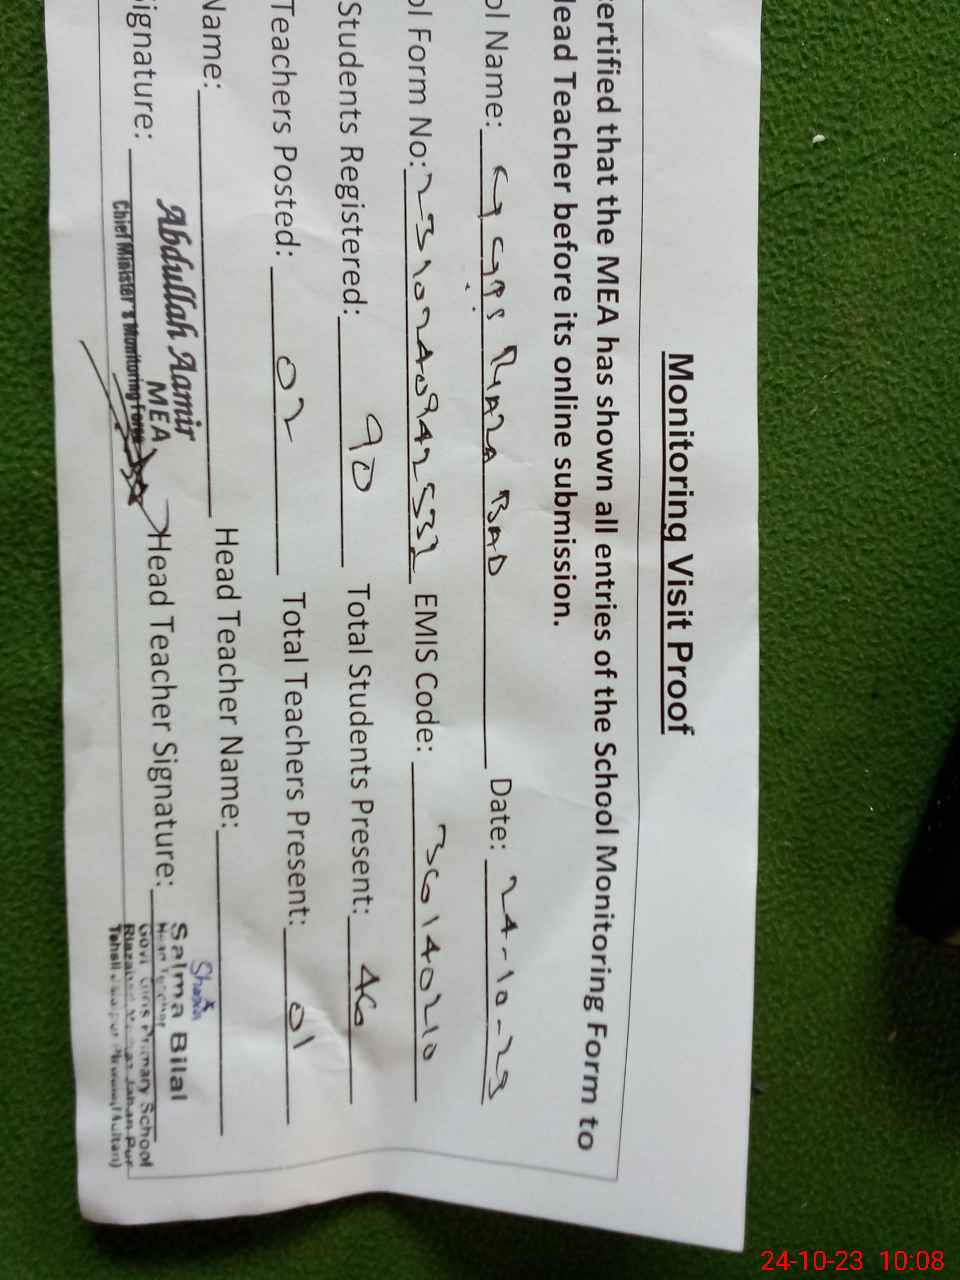 Monitoring Visit Proof
ertified that the MEA has shown all entries of the School Monitoring Form to
lead Teacher before its online submission.
ol Name: GGPS RIAZA BAD Date: 24-10-23
ol Form No: EMIS Code: 36140210
Students Registered: 90 Total Students Present: 46
Teachers Posted: 02 Total Teachers Present: 01
Name: Head Teacher Name:
ignature: Abdullah Aamir Head Teacher Signature: Salma Bilal
MEA
Chief Minister's Monitoring Force
Head Teacher
Govt Girls Primary School
24-10-23 10:08